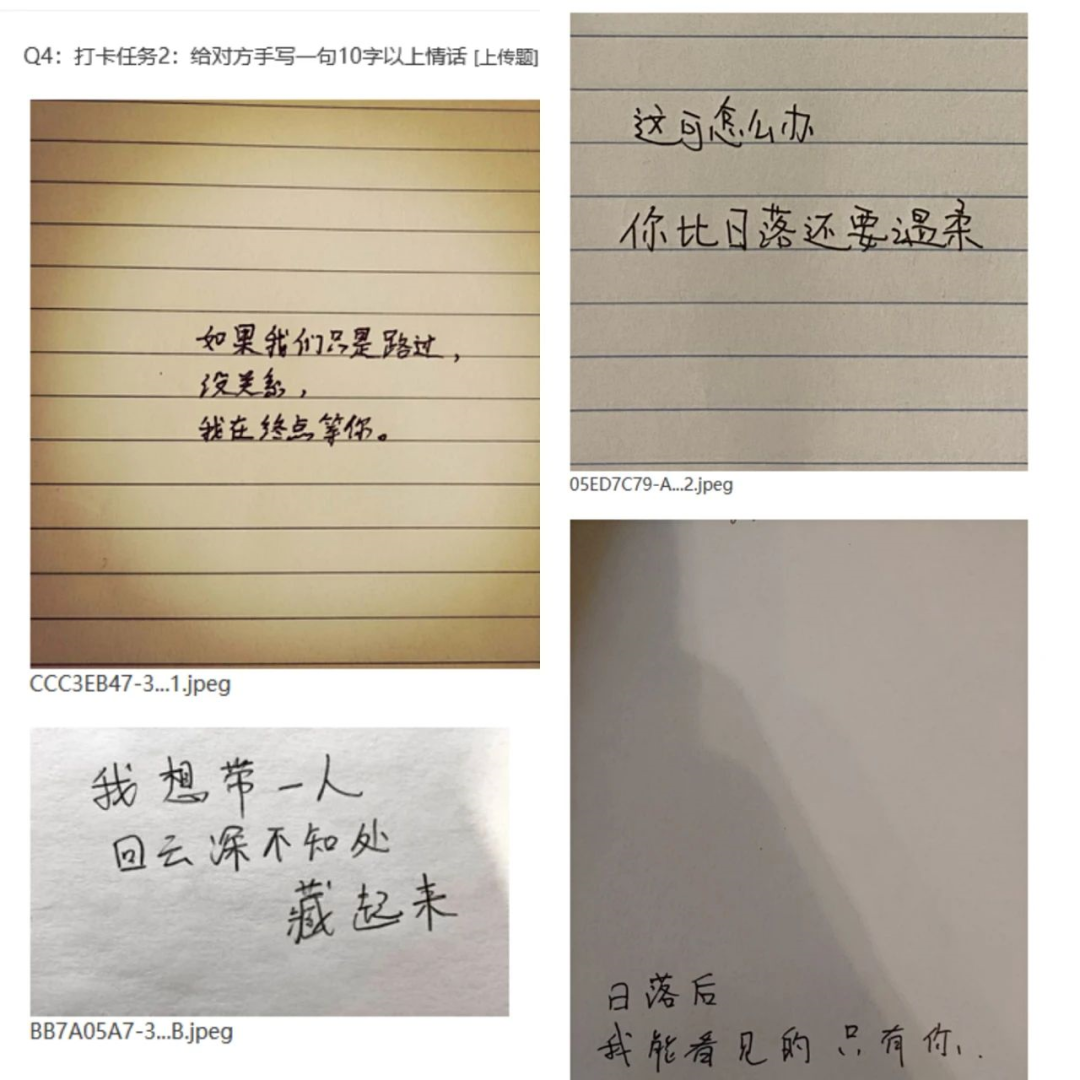 Q4：打卡任务2：给对方手写一句10字以上情话 [上传题]
如果我们只是路过，
没关系，
我在终点等你。
CCC3EB47-3...1.jpeg
我想带一人
回云深不知处
藏起来
BB7A05A7-3...B.jpeg
这可怎么办
你比日落还要温柔
05ED7C79-A...2.jpeg
日落后
我能看见的只有你..